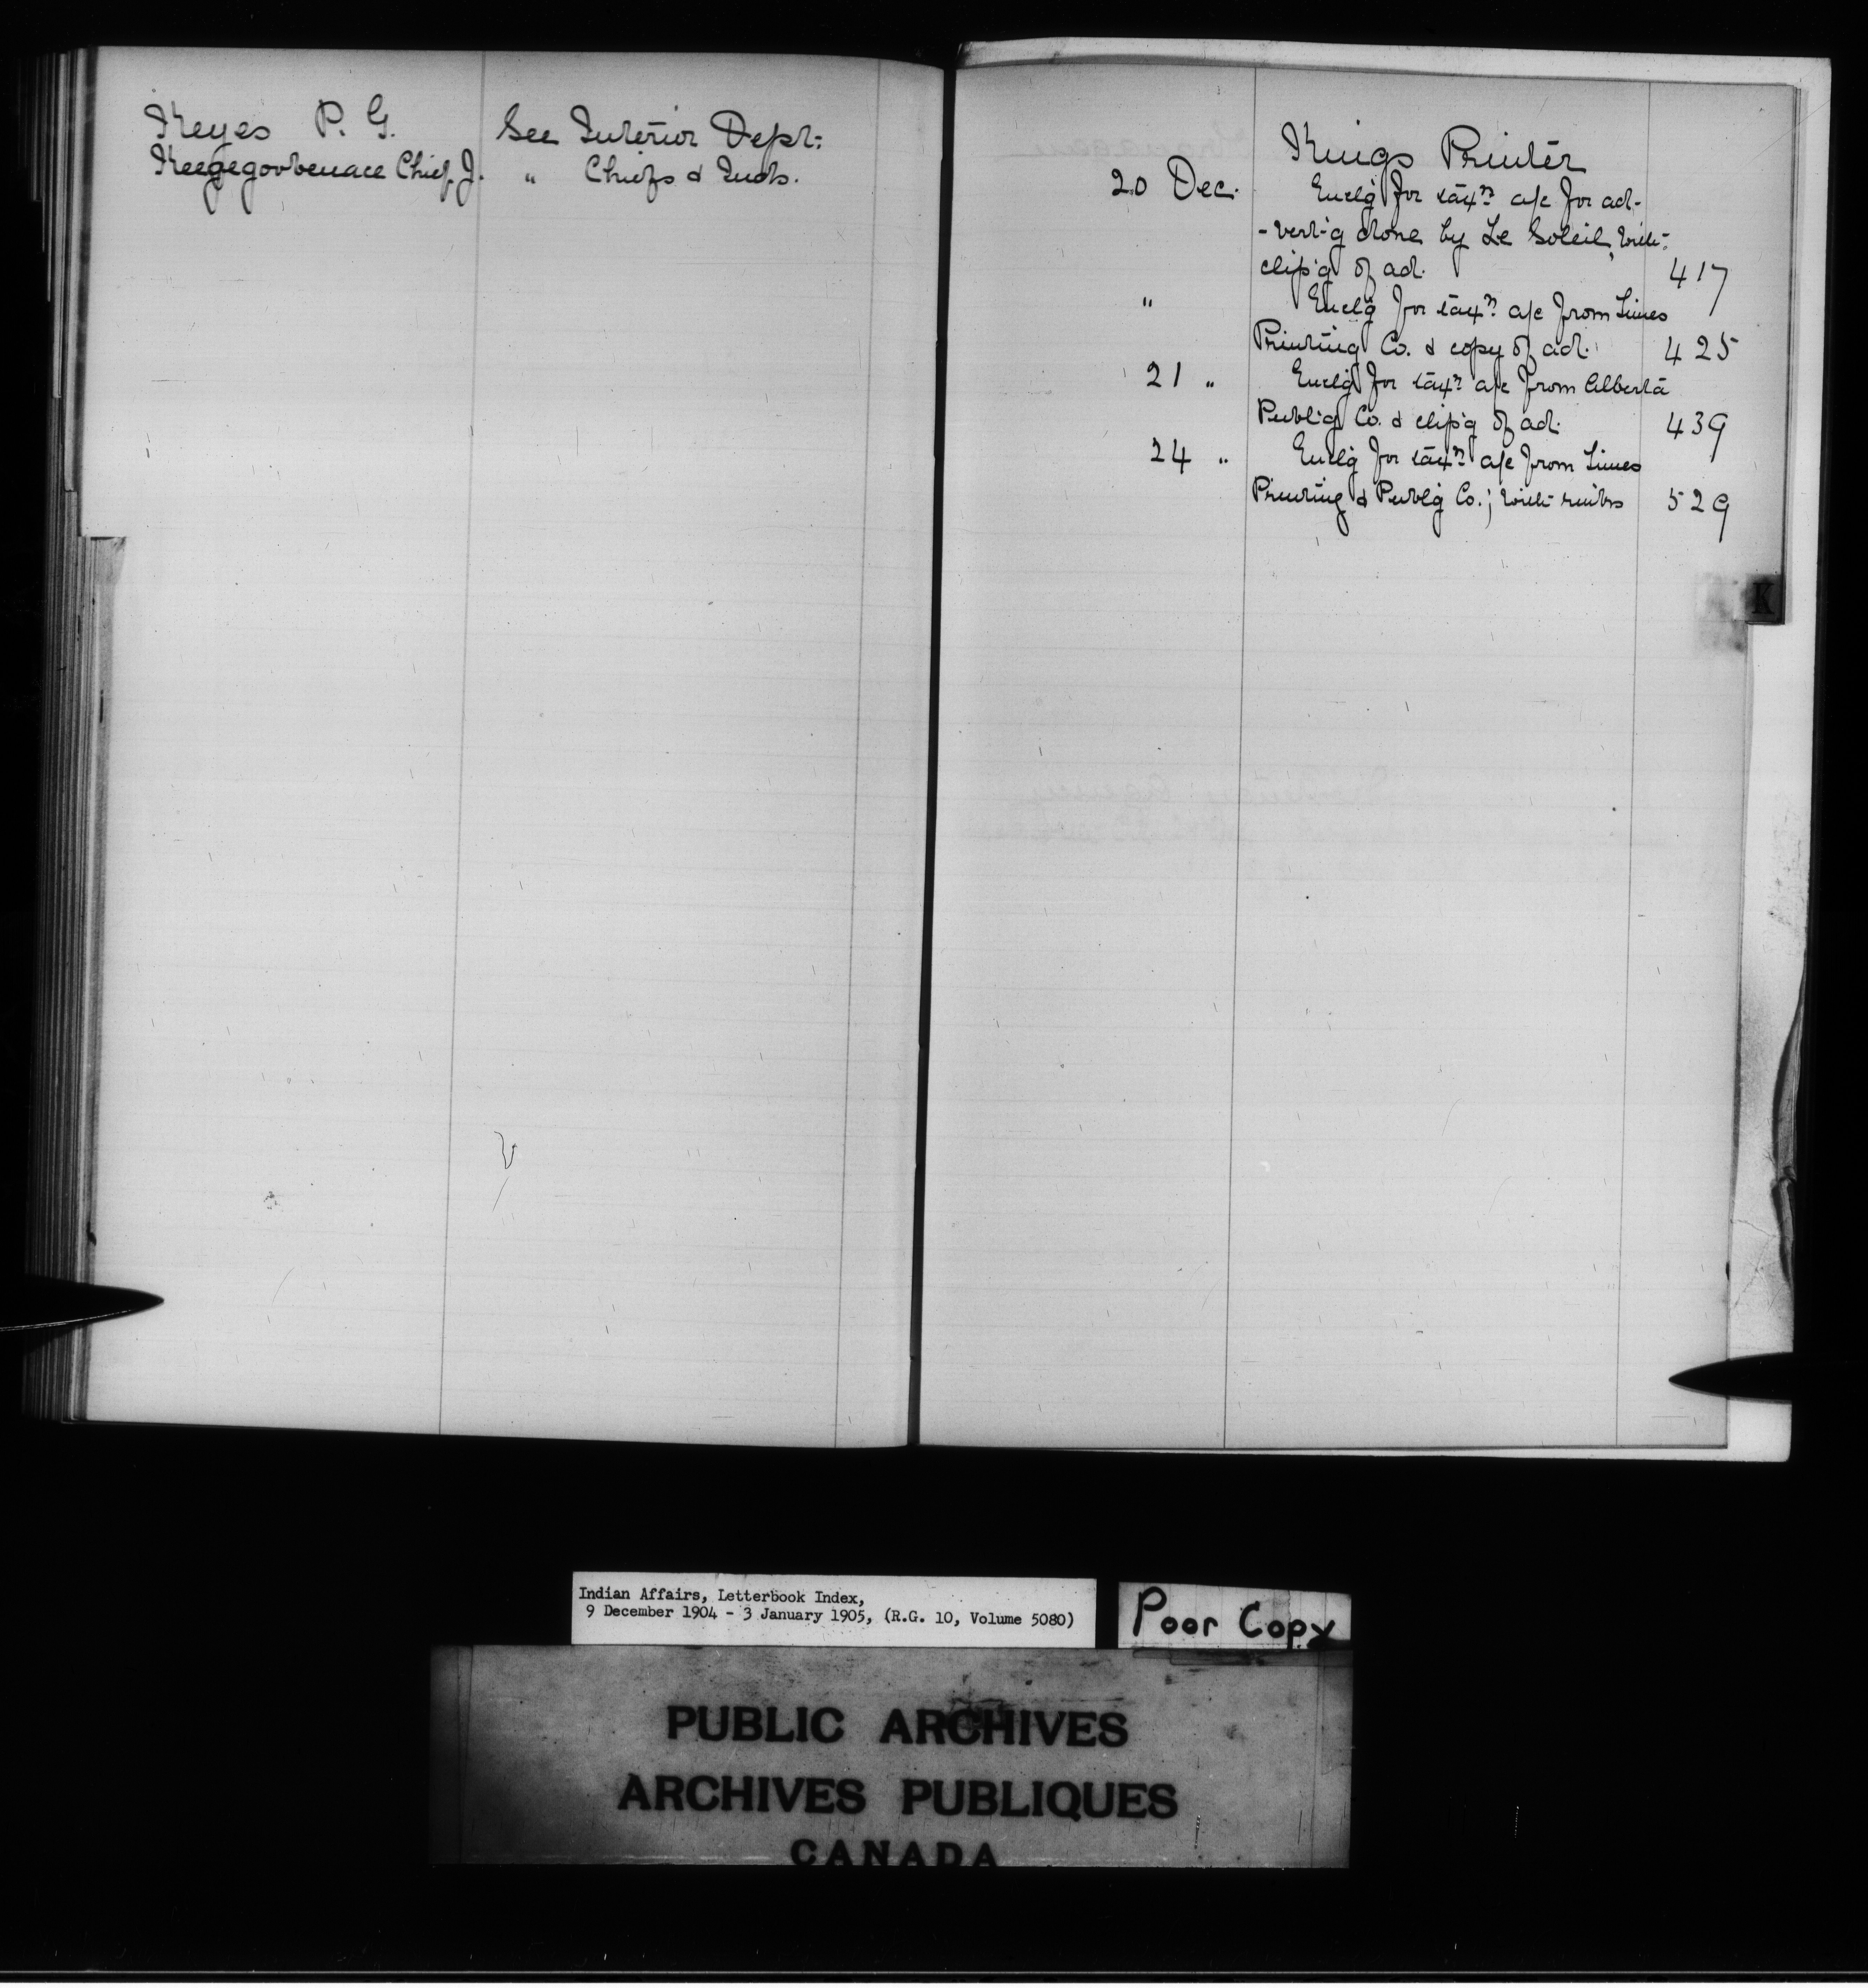 Keyes P. G. See Interior Dept.
Keegegowbenace Chief J. " Chiefs & Inds.
Kings Printer
20 Dec. Enclg for taxn a/c for ad-
-vert-g done by Le Soleil, with
clip'g of ad. 417
" Enclg for taxn a/c from Times
Printing Co. & copy of ad. 425
21 " Enclg for taxn a/c from Alberta
Publ'g Co. & clip'g of ad. 439
24 " Enclg for taxn a/c from Times
Printing & Publg Co.; with 529
K
Indian Affairs, Letterbook Index,
9 December 1904 - 3 January 1905, (R.G. 10, Volume 5080)
Poor Copy
PUBLIC ARCHIVES
ARCHIVES PUBLIQUES
CANADA